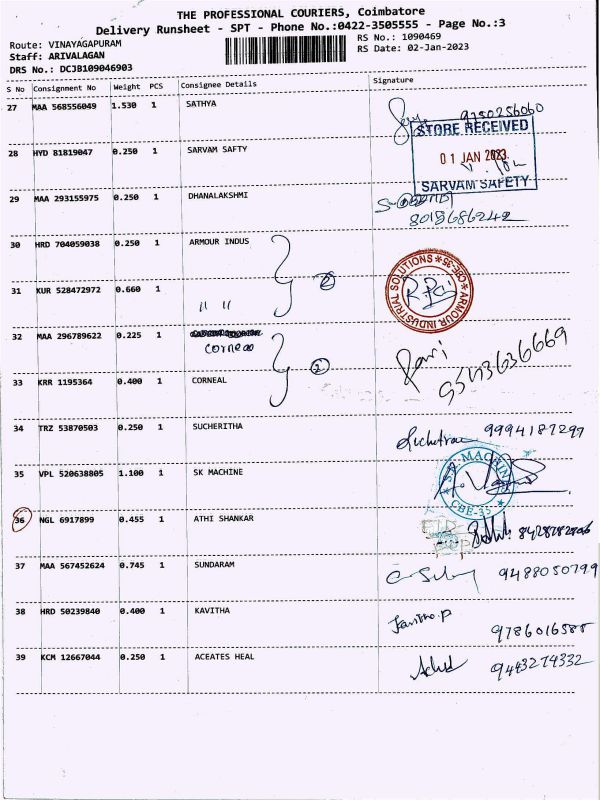 THE PROFESSIONAL COURIERS, Coimbatore
Delivery Runsheet - SPT - Phone No.:0422-3505555 - Page No.:3
Route: VINAYAGAPURAM
RS No.: 1090469
Staff: ARIVALAGAN
RS Date: 02-Jan-2023
DRS No.: DCJB109046903
S No Consignment No Weight PCS Consignee Details Signature
27 MAA 568556049 1.530 1 SATHYA
9750256060
STORE RECEIVED
28 HYD 81819047 0.250 1 SARVAM SAFTY
01 JAN 2023
SARVAM SAFETY
29 MAA 293155975 0.250 1 DHANALAKSHMI
8018686242
30 HRD 704059038 0.250 1 ARMOUR INDUS
2
31 KUR 528472972 0.660 1 " "
ARMOUR INDUSTRIAL SOLUTIONS * CBE-35 *
32 MAA 296789622 0.225 1 Corneao
Ravi 9543636669
2
33 KRR 1195364 0.400 1 CORNEAL
34 TRZ 53870503 0.250 1 SUCHERITHA
9994187297
35 VPL 520638805 1.100 1 SK MACHINE
MACHIN
CBE-35
36 NGL 6917899 0.455 1 ATHI SHANKAR
37 MAA 567452624 0.745 1 SUNDARAM
9488050799
38 HRD 50239840 0.400 1 KAVITHA
Kavitha.P
9786016588
39 KCM 12667044 0.250 1 ACEATES HEAL
9443274332